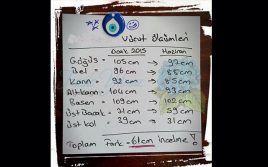 Vücut Ölçümleri
Ocak 2015 Haziran
Göğüs = 105 cm → 97 cm
Bel = 96 cm → 85 cm
Karın = 92 cm → 85 cm
Altkarın = 104 cm → 93 cm
Basen = 109 cm → 102 cm
Üst Bacak = 71 cm → 59 cm
Üst kol = 39 cm → 31 cm
Toplam Fark = 61 cm incelme !